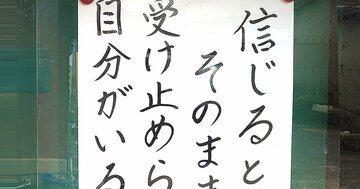 信じると
そのまま
受け止めら
自分がいる